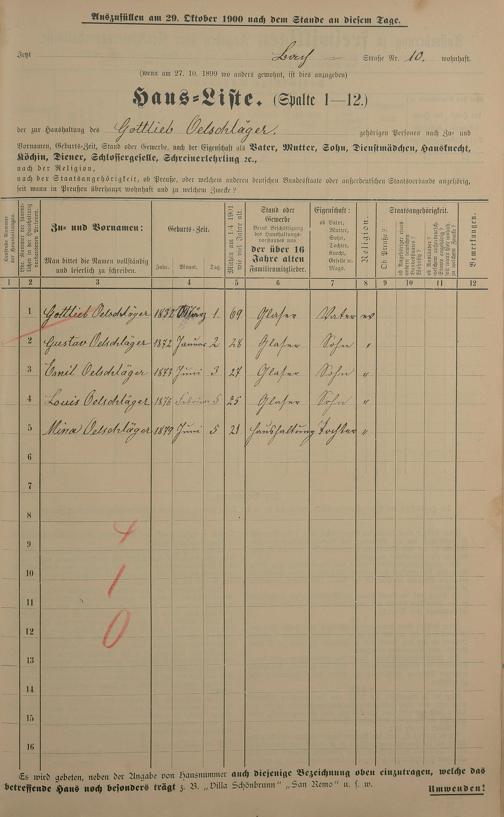 Auszufüllen am 29. Oktober 1900 nach dem Stande an diesem Tage.
Jetzt Straße Nr. 10. wohnhaft.
(wenn am 27. 10. 1899 wo anders gewohnt, ist dies anzugeben)
Haus-Liste. (Spalte 1—12.)
der zur Haushaltung des Gottlieb Oelschläger. gehörigen Personen nach Zu- und
Vornamen, Geburts-Zeit, Stand oder Gewerbe, nach der Eigenschaft als Vater, Mutter, Sohn, Dienstmädchen, Hausknecht,
Köchin, Diener, Schlossergeselle, Schreinerlehrling 2c.,
nach der Religion,
nach der Staatsangehörigkeit, ob Preuße, oder welchem anderen deutschen Bundesstaate oder außerdeutschen Staatsverbande angehörig,
seit wann in Preußen überhaupt wohnhaft und zu welchem Zwecke?
Zu- und Vornamen:
Man bittet die Namen vollständig
und leserlich zu schreiben.
Geburts-Zeit.
Jahr. Monat. Tag.
Mithin am 1./4. 1901
wie viel Jahre alt.
Stand oder
Gewerbe
der über 16
Jahre alten
Familienmitglieder.
Eigenschaft:
ob Vater,
Mutter,
Sohn,
Tochter,
Knecht,
Geselle u.
Magd.
Religion.
Staatsangehörigkeit.
Ob Preuße?
Bemerkungen.
1 2 3 4 5 6 7 8 9 10 11 12
1 Gottlieb Oelschläger 1832 März 1. 69 Glaser Vater ev
2 Gustav Oelschläger 1872 Januar 2 28 Glaser Sohn "
3 Emil Oelschläger 1873 Juni 3 27 Glaser Sohn "
4 Louis Oelschläger 1876 Februar 5 25 Glaser Sohn "
5 Mina Oelschläger 1879 Juni 5 21 Haushaltung Tochter "
6
7
8
9
10
11
12
13
14
15
16
4
1
0
Es wird gebeten, neben der Angabe von Hausnummer auch diejenige Bezeichnung oben einzutragen, welche das
betreffende Haus noch besonders trägt z. B. „Villa Schönbrunn“ „San Remo“ u. s. w. Umwenden!